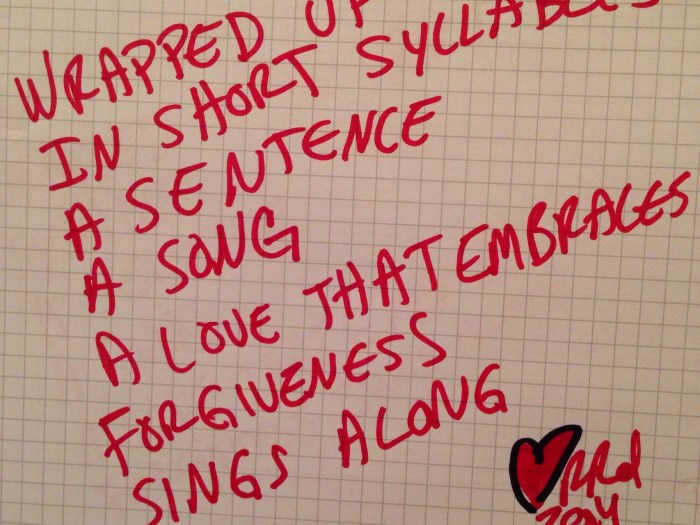 WRAPPED UP
IN SHORT SYLLABLES
A SENTENCE
A SONG
A LOVE THAT EMBRACES
FORGIVENESS
SINGS ALONG